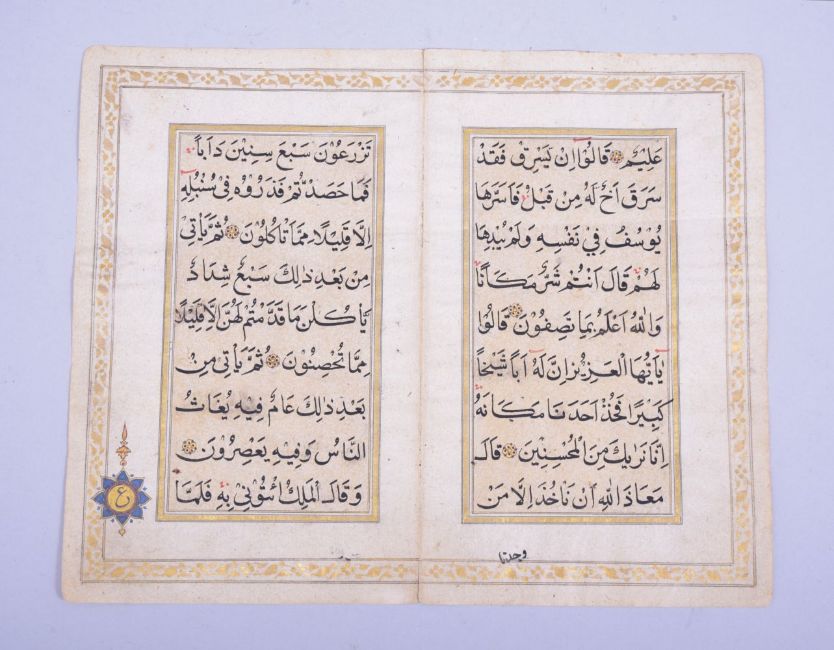 عَلِيْمٌ قَالُوْا اِنْ يَسْرِقْ فَقَدْ
سَرَقَ اَخٌ لَهُ مِنْ قَبْلُ فَاَسَرَّهَا
يُوْسُفُ فِيْ نَفْسِهِ وَلَمْ يُبْدِهَا
لَهُمْ قَالَ اَنْتُمْ شَرٌّ مَكَانًا
وَاللهُ اَعْلَمُ بِمَا تَصِفُوْنَ قَالُوْا
يٰاَيُّهَا الْعَزِيْزُ اِنَّ لَهُ اَبًا شَيْخًا
كَبِيْرًا فَخُذْ اَحَدَنَا مَكَانَهُ
اِنَّا نَرٰيكَ مِنَ الْمُحْسِنِيْنَ قَالَ
مَعَاذَ اللهِ اَنْ نَاْخُذَ اِلَّا مَنْ
وجدنا
تَزْرَعُوْنَ سَبْعَ سِنِيْنَ دَاَبًا
فَمَا حَصَدْتُّمْ فَذَرُوْهُ فِيْ سُنْبُلِهِ
اِلَّا قَلِيْلًا مِمَّا تَاْكُلُوْنَ ثُمَّ يَاْتِيْ
مِنْ بَعْدِ ذٰلِكَ سَبْعٌ شِدَادٌ
يَاْكُلْنَ مَا قَدَّمْتُمْ لَهُنَّ اِلَّا قَلِيْلًا
مِمَّا تُحْصِنُوْنَ ثُمَّ يَاْتِيْ مِنْ
بَعْدِ ذٰلِكَ عَامٌ فِيْهِ يُغَاثُ
النَّاسُ وَفِيْهِ يَعْصِرُوْنَ
وَقَالَ الْمَلِكُ ائْتُوْنِيْ بِهِ فَلَمَّا
ع